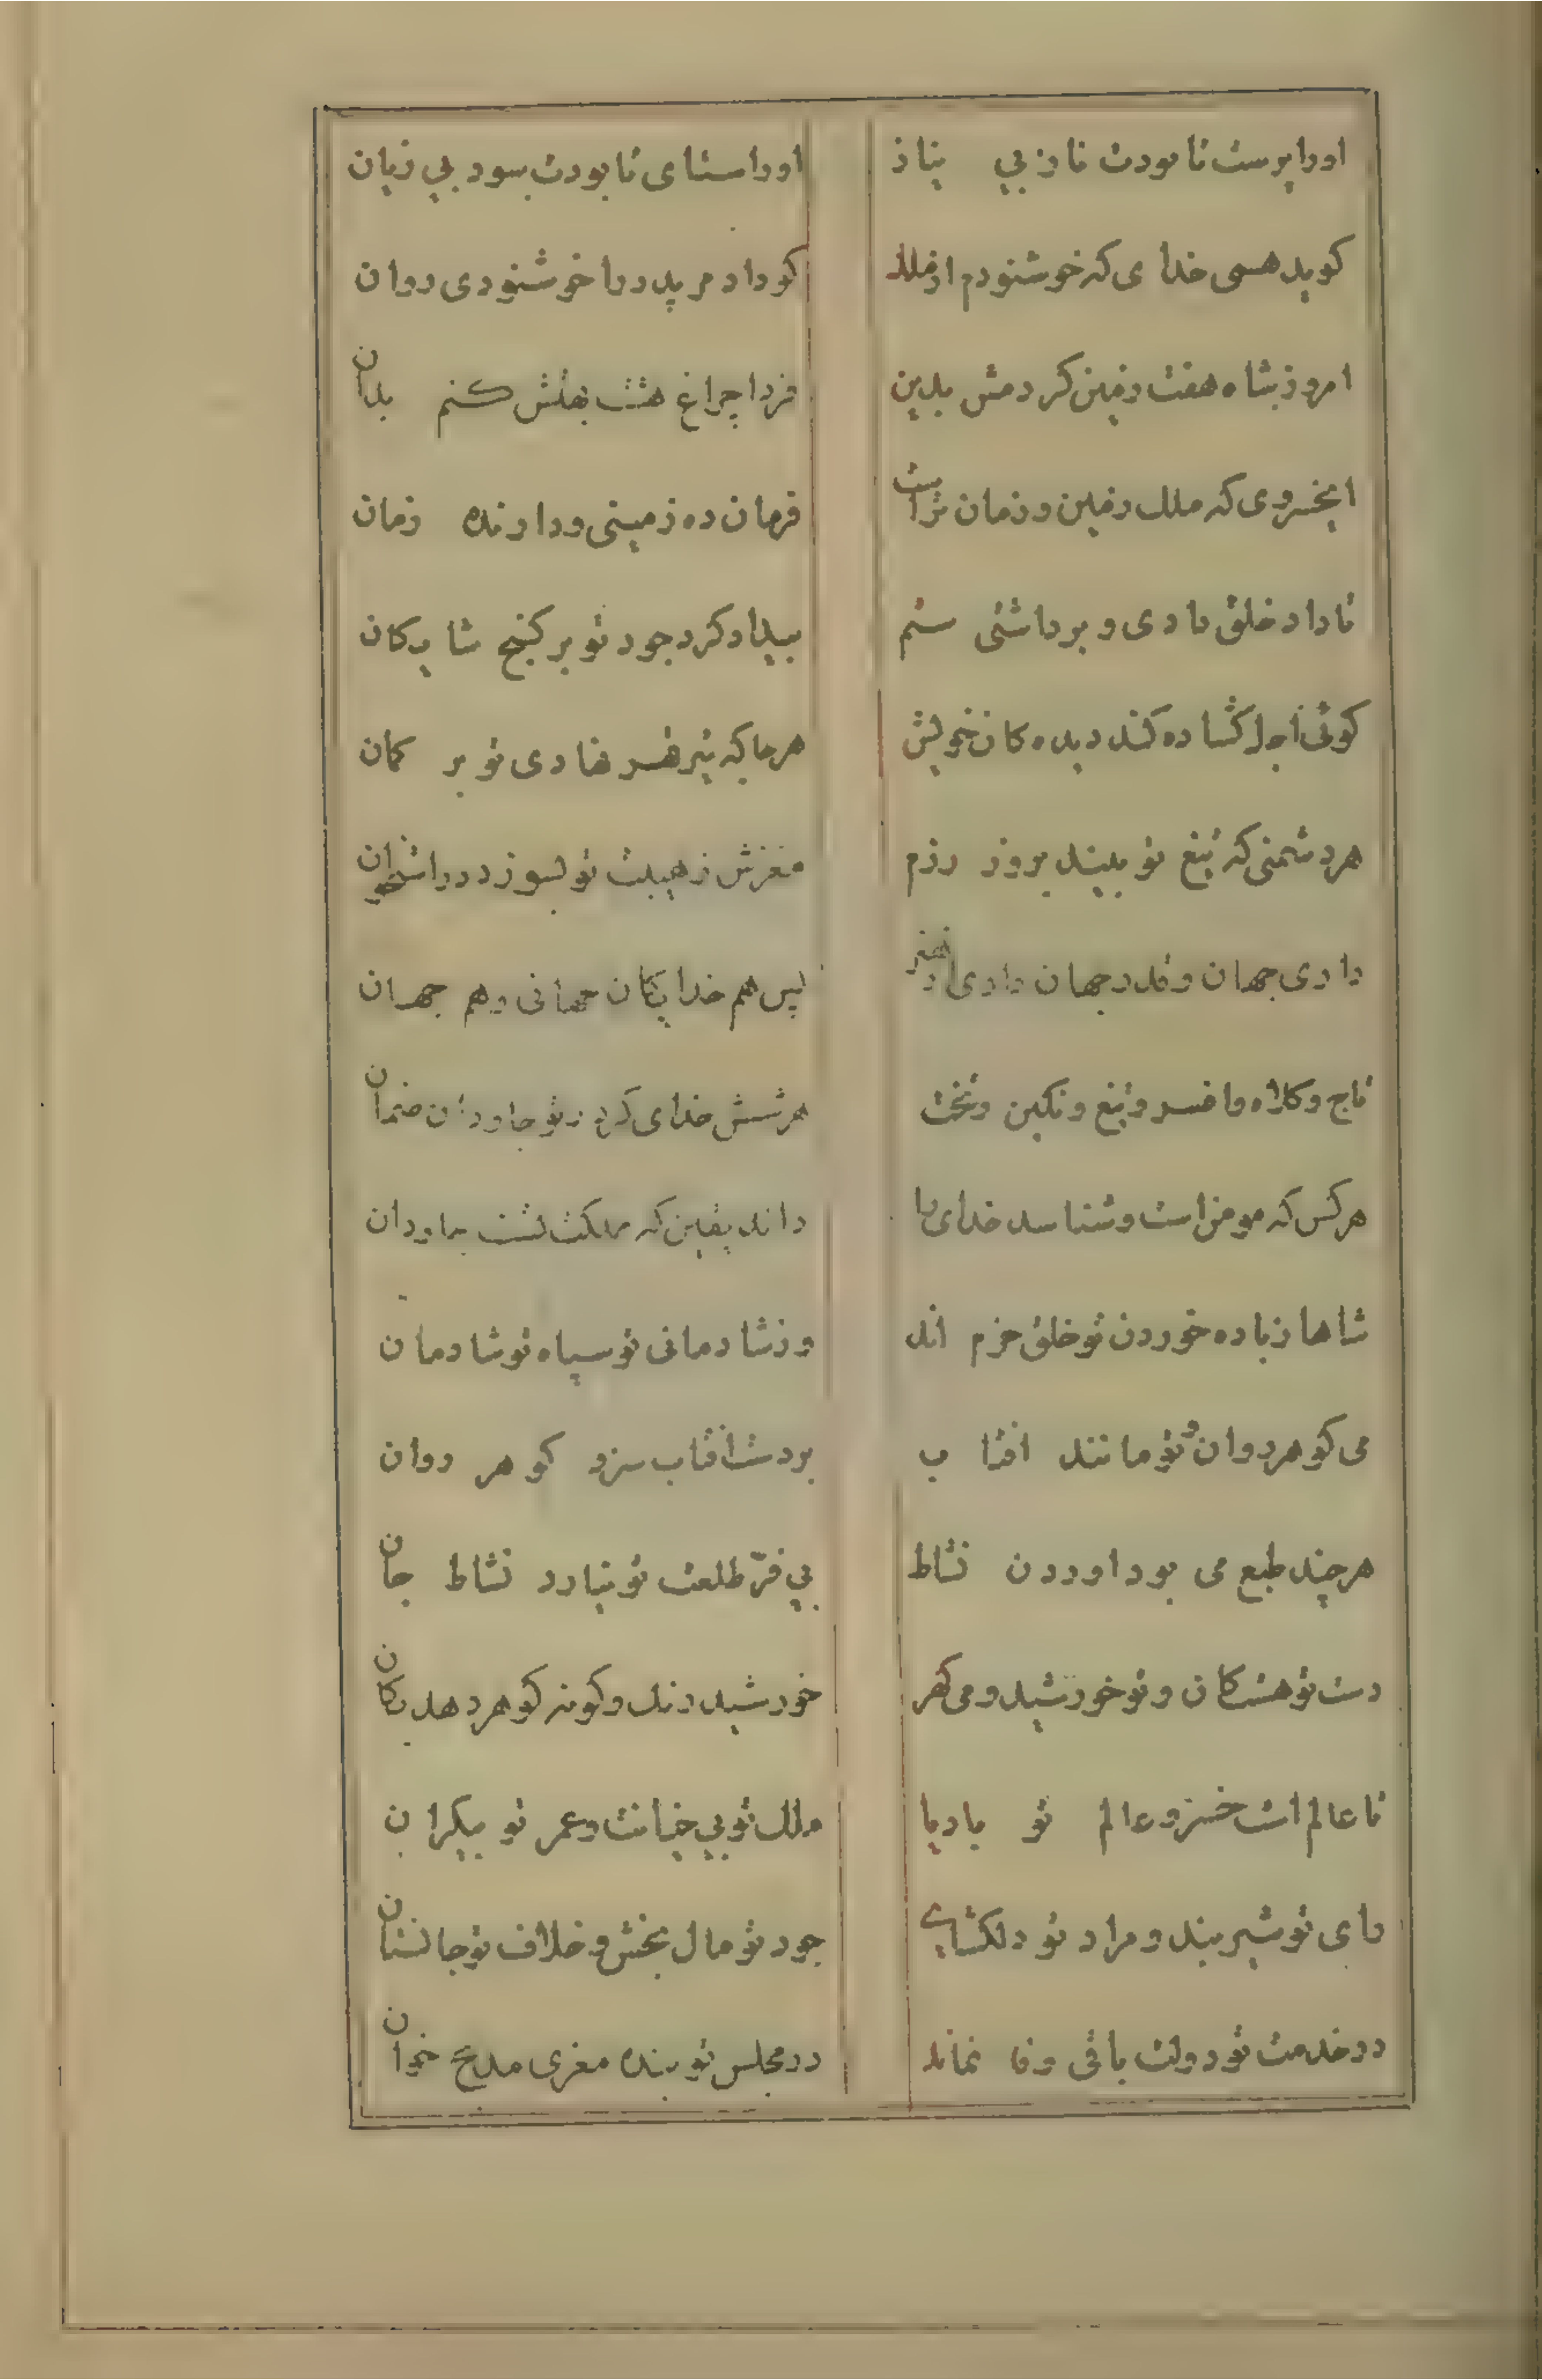 اورا پرست تا بودت ناز بی نیاز
اورا ستای تا بودت سود بی زیان
کوید همی خدای که خوشنودم از ملک
کو داد مر پدر را خوشنودی روان
امروز شاه هفت زمین کردمش بدین
فردا چراغ هشت بهشتش کنم بدان
ای خسروی که ملک زمین و زمان تراست
فرمان ده زمینی و دارنده زمان
تا داد خلق دادی و برداشتی ستم
بیداد کرد جود تو بر کنج شایکان
کوئی اجل کشاده کند دیده کان خویش
هرجا که تیر قهر نهادی تو بر کمان
هر دشمنی که تیغ تو بیند بروز رزم
مغزش ز هیبت تو بسوزد در استخوان
داری جهان و قدر جهان داری از هنر
پس هم خدایکان جهانی و هم جهان
تاج و کلاه و افسر و تیغ و نکین و تخت
هر شش خدای کرد بتو جاودان ضمان
هر کس که مومن است و شناسد خدای را
داند یقین که ملکت تست جاودان
شاها ز باده خوردن تو خلق خرم اند
وز شادمانی تو سپاه تو شادمان
می کوهر روان و تو مانند افتاب
بر دست افتاب سزد کوهر روان
هرچند طبع می بود اوردن نشاط
بی فرّ طلعت تو نیارد نشاط جان
دست تو هست کان و تو خورشید و می کهر
خورشید رنک و کونه کوهر دهد بکان
تا عالم است خسرو عالم تو باد یا
ملک تو بی خیانت و عمر تو بیکران
رای تو شیر بند و مراد تو دلکشای
جود تو مال بخش و خلاف تو جانستان
در خدمت تو دولت باقی وفا نماند
در مجلس تو بنده مغزی مدح خوان